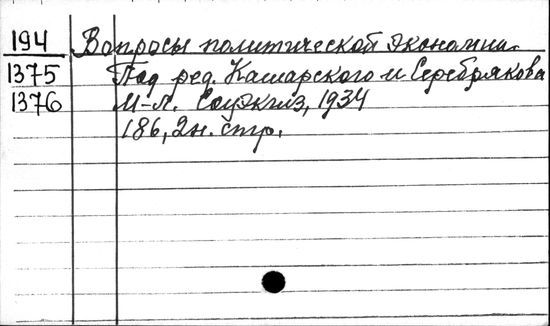 194 Вопросы политической экономии.
1375 Под ред. Кашарского и Серебрякова
1376 М-Л. Соцэкгиз, 1934
186, 2н. стр.